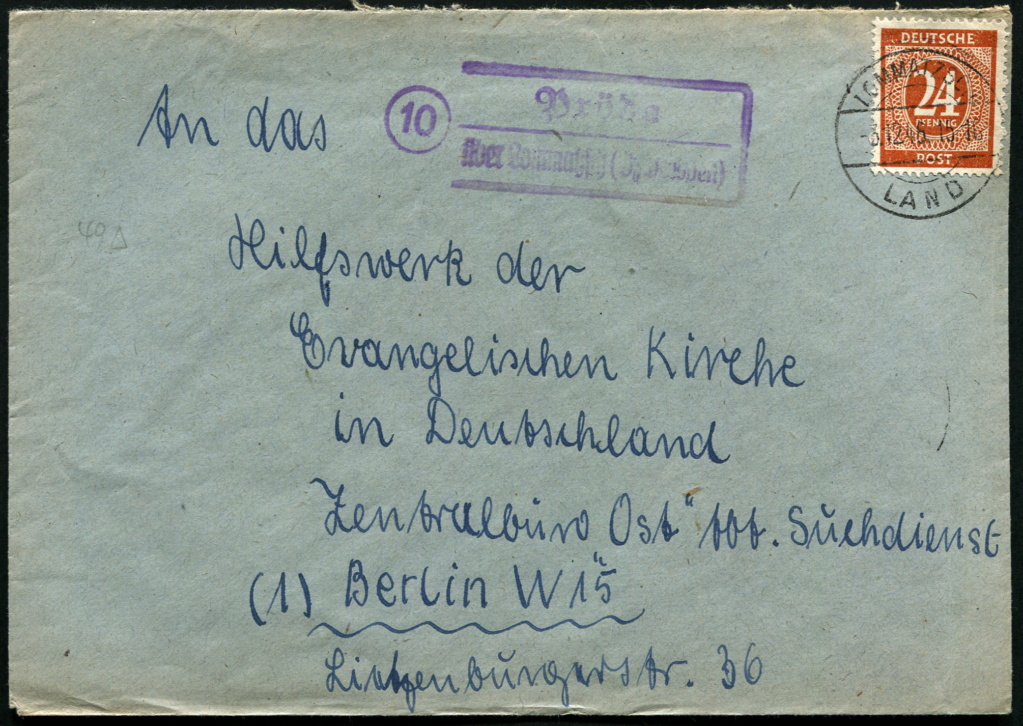 DEUTSCHE
24
PFENNIG
POST
LOMMATZSCH
LAND
10
über Lommatzsch
An das
49
Hilfswerk der
Evangelischen Kirche
in Deutschland
Zentralbüro Ost" Abt. Suchdienst
(1) Berlin W15
Lietzenburgerstr. 36